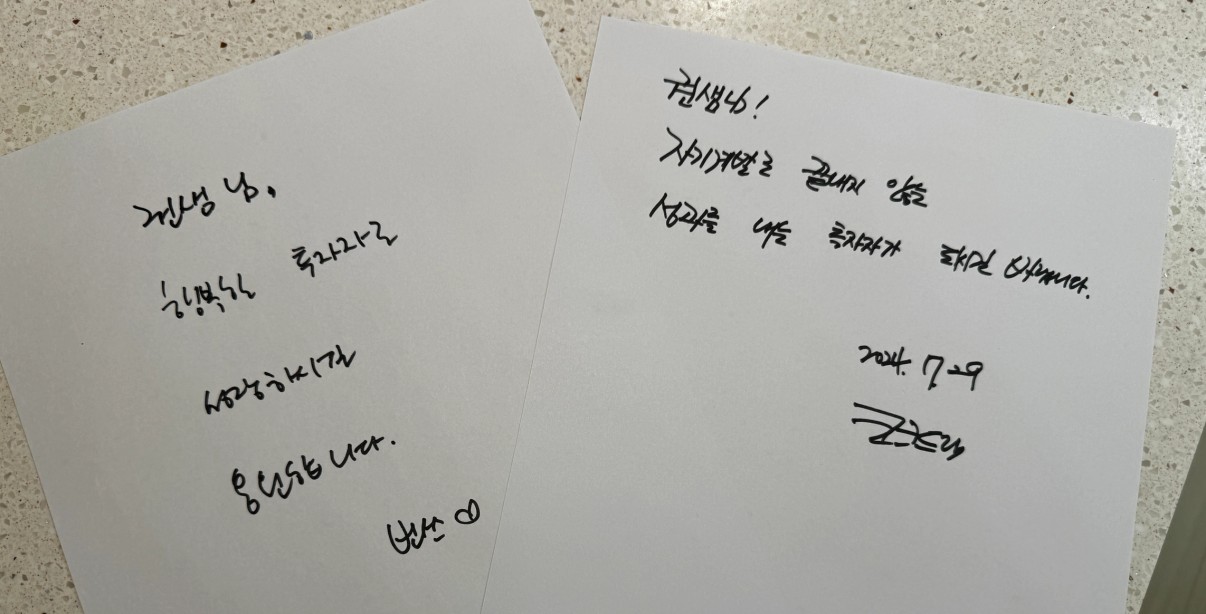 권생님.
행복한 투자자로
성장하시길
응원합니다.
권생님!
자기계발로 끝내지 않는
성과를 내는 투자자가 되시길 바랍니다.
2024. 7. 29